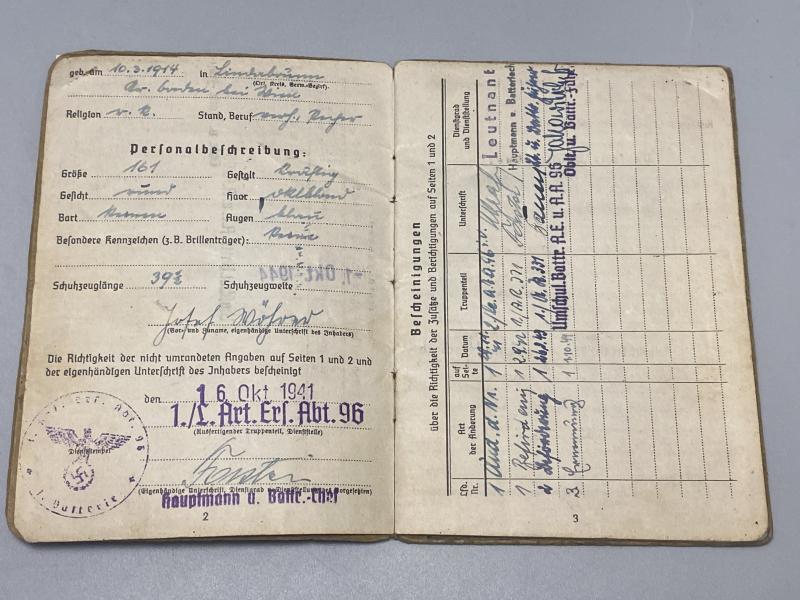 geb. am 10.3.1914 in Lindabrunn
(Ort, Kreis, Verw.-Bezirk)
Kr. baden bei Wien
Religion r. k. Stand, Beruf verh.,
Personalbeschreibung:
Größe 161 Gestalt kräftig
Gesicht rund Haar dklblond
Bart keinen Augen blau
Besondere Kennzeichen (z. B. Brillenträger): keine
-1. Okt. 1944
Schuhzeuglänge 39½ Schuhzeugweite
Josef Wöhrer
(Vor- und Zuname, eigenhändige Unterschrift des Inhabers)
Die Richtigkeit der nicht umrandeten Angaben auf Seiten 1 und 2 und
der eigenhändigen Unterschrift des Inhabers bescheinigt
den 16. Okt 1941
1./L. Art. Ers. Abt. 96
(Ausfertigender Truppenteil, Dienststelle)
L. Art. Ers. Abt. 96
Dienststempel
1. Batterie
(Eigenhändige Unterschrift, Dienstgrad u. Dienststellung des Vorgesetzten)
Hauptmann u. Battr.-Chef
2
Bescheinigungen
über die Richtigkeit der Zusätze und Berichtigungen auf Seiten 1 und 2
Lfd. Nr. Art der Änderung auf Seite Datum Truppenteil Unterschrift Dienstgrad und Dienststellung
1 1 Leutnant
1 Beförderung 1 1/A.R. 331 Hauptmann u. Batteriechef
2 Beförderung 1 1./A.R. 331
3 Ernennung 1 1.10.44 Umschul. Battr. A.E. u. A.A. 96 Oblt. u. Battr.-Führ.
3